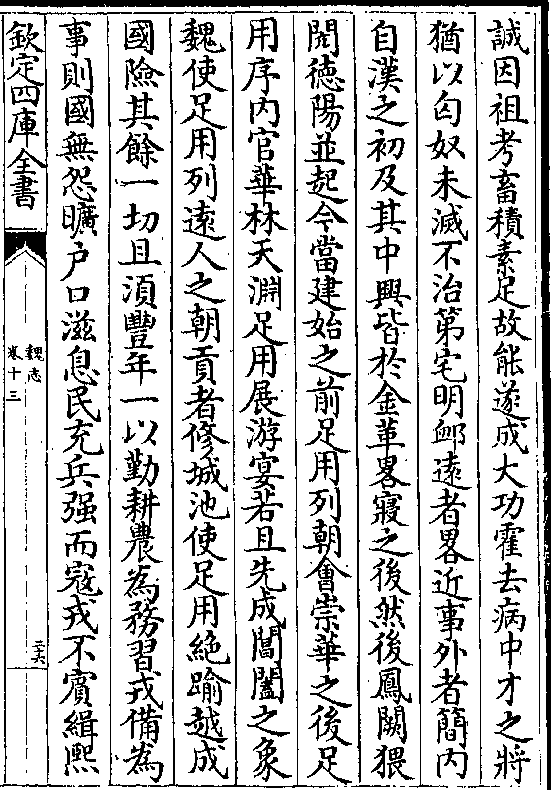 誠因祖考畜積素足故能遂成大功霍去病中才之將
猶以匈奴未滅不治第宅明䘏遠者畧近事外者簡内
自漢之初及其中興皆於金革畧寢之後然後鳳闕猥
閌徳陽並起今當建始之前足用列朝會崇華之後足
用序内官華林天淵足用展游宴若且先成閶闔之象
魏使足用列遠人之朝貢者修城池使足用絶踰越成
國險其餘一切且須豐年一以勤耕農為務習戎備為
事則國無怨曠户口滋息民充兵强而寇戎不賓緝熙
欽定四庫全書
魏志
卷十三
三六